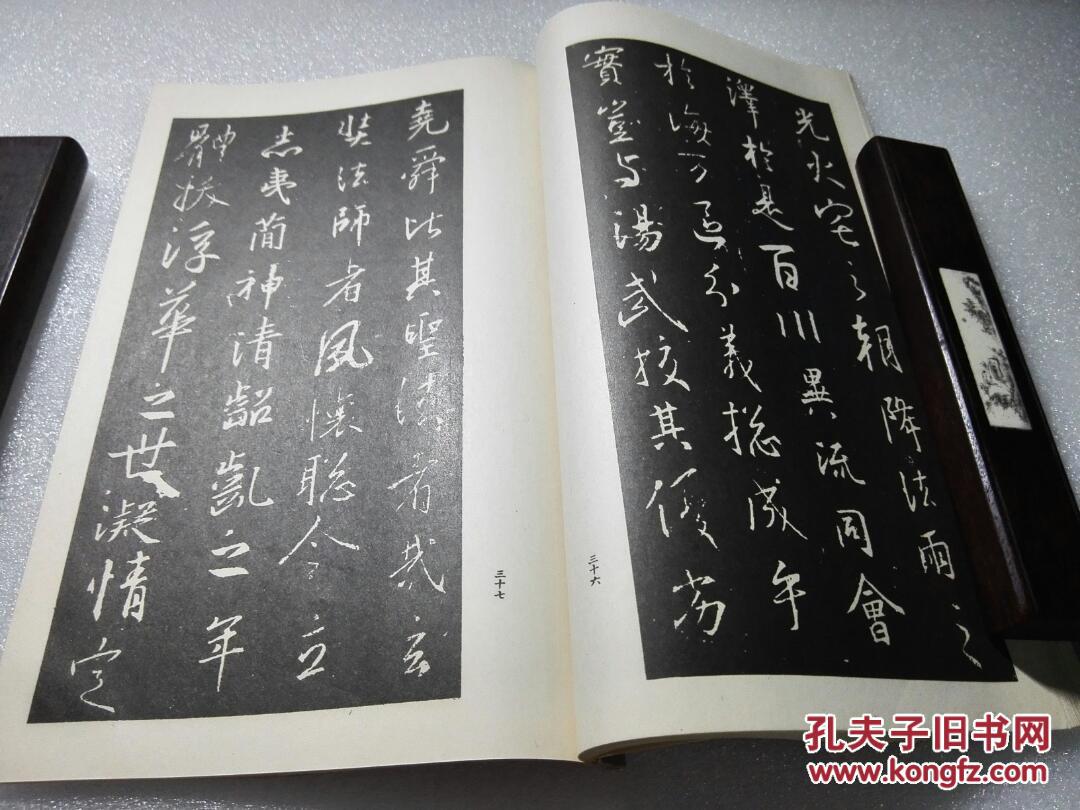 光火宅之朝降法雨之
澤於是百川異流同會
於海万區分義揔成乎
實豈与湯武校其優劣
三十六
堯舜比其聖德者哉玄
奘法師者夙懷聰令立
志夷簡神清齠齔之年
體拔浮華之世凝情定
三十七
孔夫子旧书网
www.kongfz.com